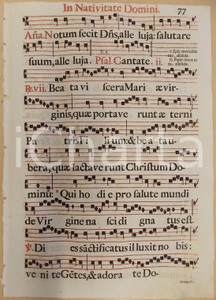 In Nativitate Domini. 77
Aña. Notum fecit Dñs, alle luja: salutare
suum, alle luja. Psal. Cantate. ii.
R. vii. Bea ta vi scera Mari æ vir-
ginis, quæ portave runt æ terni
Pa tris fi li um & bea ta u-
bera, quæ lactave runt Christum Do-
minū: Qui ho di e pro salute mundi
de Vir gine na sci di gna tus est
V. Di es sāctificatus illuxit no bis:
ve ni te Gētes, & adora te Do-